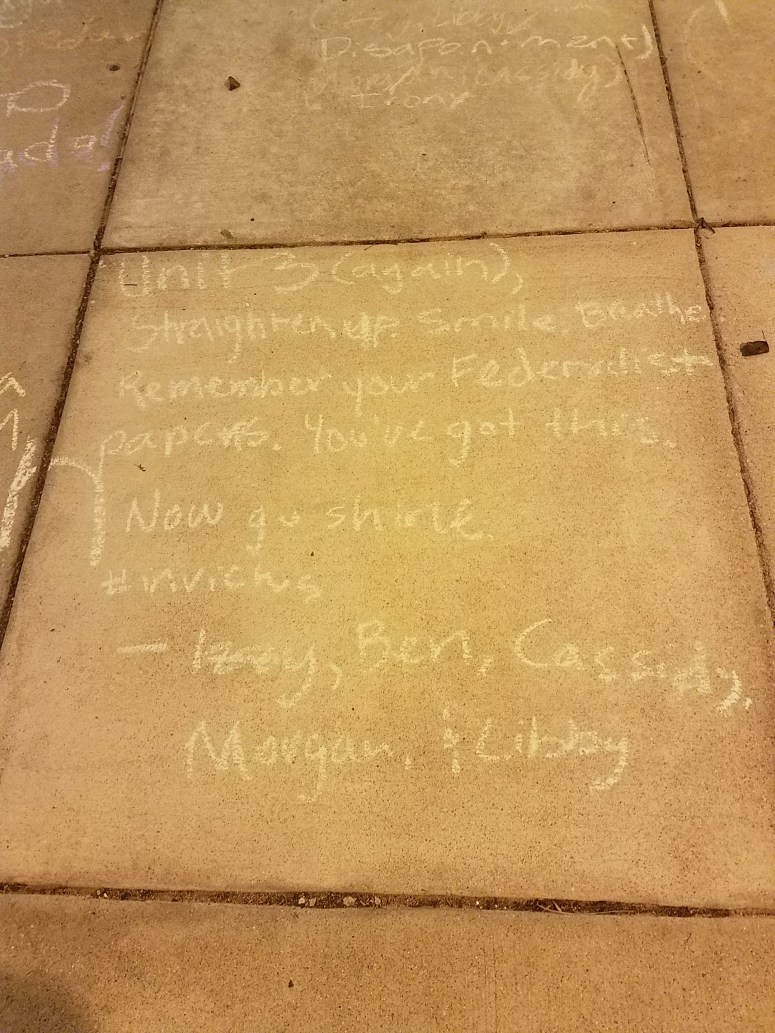 (Izzy, Libby,
Disapointment)
Morgan, (Cassidy)
& Irony
Unit 3 (again),
Straighten up. Smile. Breathe.
Remember your Federalist
papers. You've got this.
Now go shine.
#invictus
— Izzy, Ben, Cassidy,
Morgan, & Libby